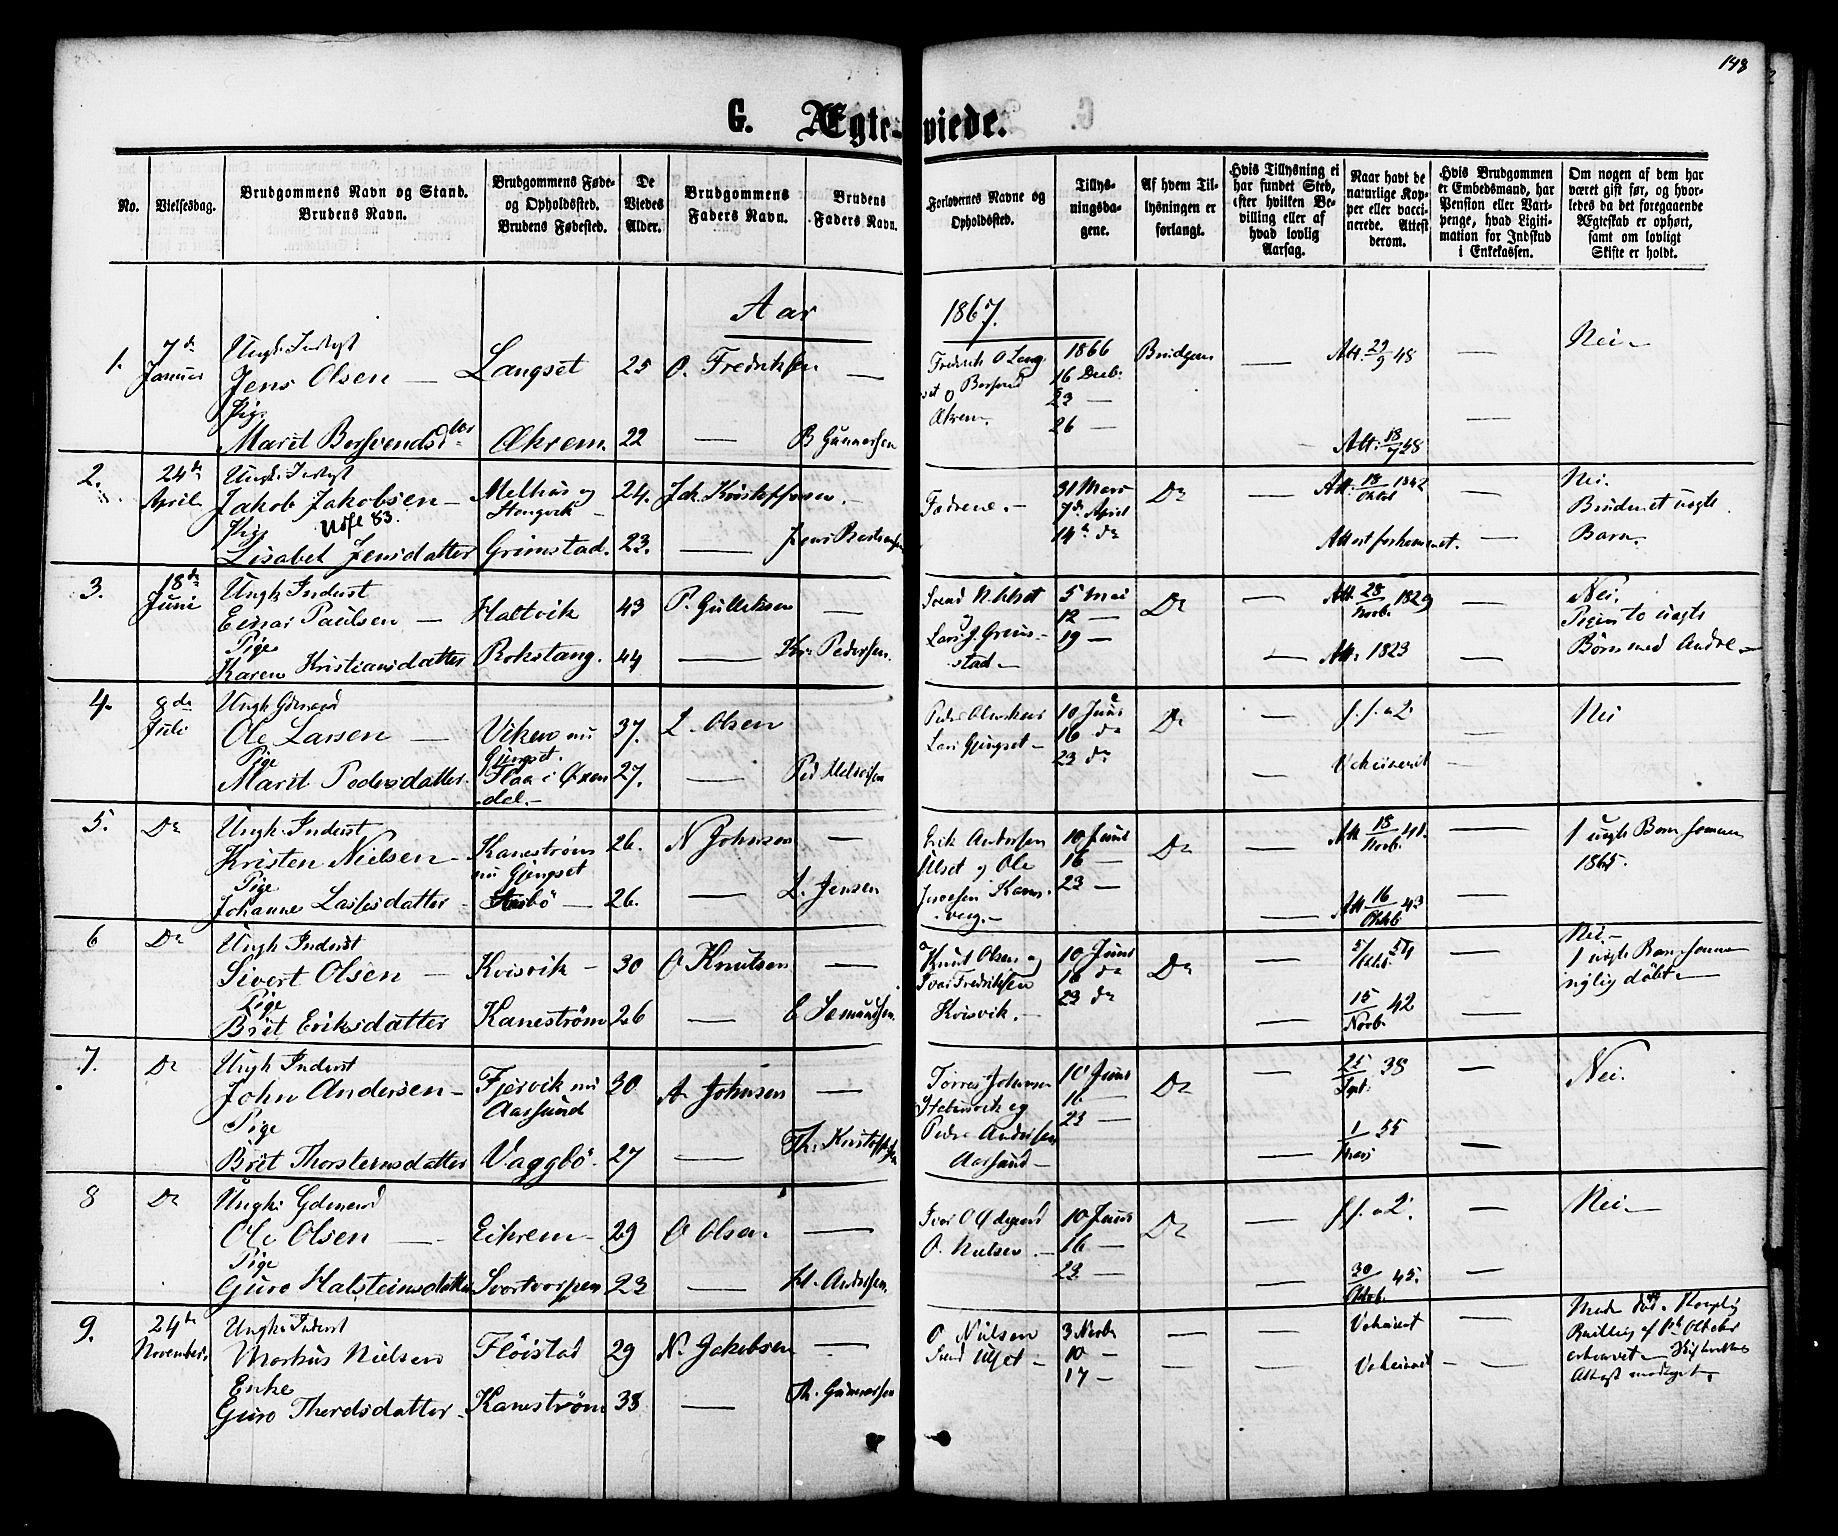 148
G. Ægte-viede.
No.
Vielsesdag.
Brudgommens Navn og Stand.
Brudens Navn.
Brudgommens Føde-
og Opholdsted.
Brudens Fødested.
De
Viedes
Alder.
Brudgommens
Faders Navn.
Brudens
Faders Navn.
Forlovernes Navne og
Opholdsted.
Tillys-
ningsda-
gene.
Af hvem Til-
lysningen er
forlangt.
Hvis Tillysning ei
har fundet Sted,
efter hvilken Be-
villing eller af
hvad lovlig
Aarsag.
Naar havt de
naturlige Kop-
per eller vacci-
nerede. Attest
derom.
Hvis Brudgommen
er Embedsmand, har
Pension eller Vart-
penge, hvad Ligiti-
mation for Indskud
i Enkekassen.
Om nogen af dem har
været gift før, og hvor-
ledes da det foregaaende
Ægteskab er ophørt,
samt om lovligt
Skifte er holdt.
Aar 1867.
1. 7de Januar
Ungk.
Jens Olsen — Langset 25 O. Fredriksen —
Pige
Marit Bersvendsdtr Ækrem. 22 — B Gunnersen
Fredrik O Lang-
set og Bersvend
Ækrem.
1866
16 Decb.
23 —
26 —
Brudgom — Att. 29/9 48 — Nei —
Att. 18/7 48 —
2. 24de April
Ungk.
Jakob Jakobsen — Melhus og Stengvik — 24. Jak. Kristoffersen —
Pige
Lisabet Jensdatter Grimstad. 23. — Jens
Fædrene. —
31 Mars
7de April
14de do
Do — Att. 18/Oktob 1842 — Nei.
Bruden et uægte
Barn.
Attest forkommet. —
3. 18de Juni
Ungk. Inderst
Einar Paulsen — Haltvik 43 P. Gulleksen —
Pige
Karen Kristiansdatter Rokstang. 44 — Kr. Pedersen.
Svend Ulset
og
Lars J. Grim-
stad —
5 Mai
12 —
19 —
Do — Att. 28/Novb. 1829 — Nei.
Pigen to uægte
Børn med Andre —
— Att. 1823 —
4. 8de Juli
Ungk. Gdmand
Ole Larsen — Viken nu Gjengset. 37. L. Olsen —
Pige
Marit Pedersdatter. Flaa i Øxen-
del. — 27. — Ped
Lars Gjengset —
10 Juni
16 do
23 do
Do — f. f. a 2. — Nei
— Vaksineret —
5. Do
Ungk. Inderst
Kristen Nielsen — Kanestrøm nu Gjengset 26. N Johnsen —
Pige
Johanne Larsdatter — Aasbö — 26. — L. Jensen
Erik Andersen
Ulset og Ole
10 Juni
16 —
23 —
Do — Att 18/Novb. 41. — 1 uægte Barn sammen
1865.
— Att 16/Oktb 43 —
6 Do
Ungk. Inderst
Sivert Olsen — Kvisvik — 30 O Knutsen —
Pige
Brit Eriksdatter Kanestrøm 26 — E Semundsen.
Knut Olsen og
Ivar Fredriksen
Kvisvik. —
10 Juni
16 do
23 do
Do — 5/Oktb. 54 — Nei. —
1 uægte Barn sammen
nylig døbt —
— 15/Novb. 42 —
7. Do
Ungk Inderst
John Andersen — Fjervik nu Aarsund 30 A. Johnsen —
Pige
Brit Thorsteinsdatter Vaggbö. 27 — Th. Kristoffersen
Torres Johansen
Peder Andersen
Aarsund —
10 Juni
16 —
23 —
Do — 25/Sept. 38 — Nei.
— 1/ 55 —
8 Do
Ungk. Gdmand
Ole Olsen — Eikrem — 29 O Olsen. —
Pige
Guro Halsteinsdatter Svortvorpen 23 — H. Andersen.
Ivar O Ødegaard
O. Nielsen. —
10 Juni
16 —
23 —
Do — f. f. a 2. — Nei. —
— 30/Oktob. 45. —
9. 24de November.
Ungk. Inderst
Markus Nielsen Flöistad 29 N. Jakobsen —
Enke
Guro Thordsdatter — Kanestrøm 38 — Th. Gunnersen
O. Nielsen
Svend Ulset —
3 Novb.
10 —
17 —
— — Vaksineret
— — Vaksineret — —
Bevilling af 1ste Oktober
Attest modtaget.